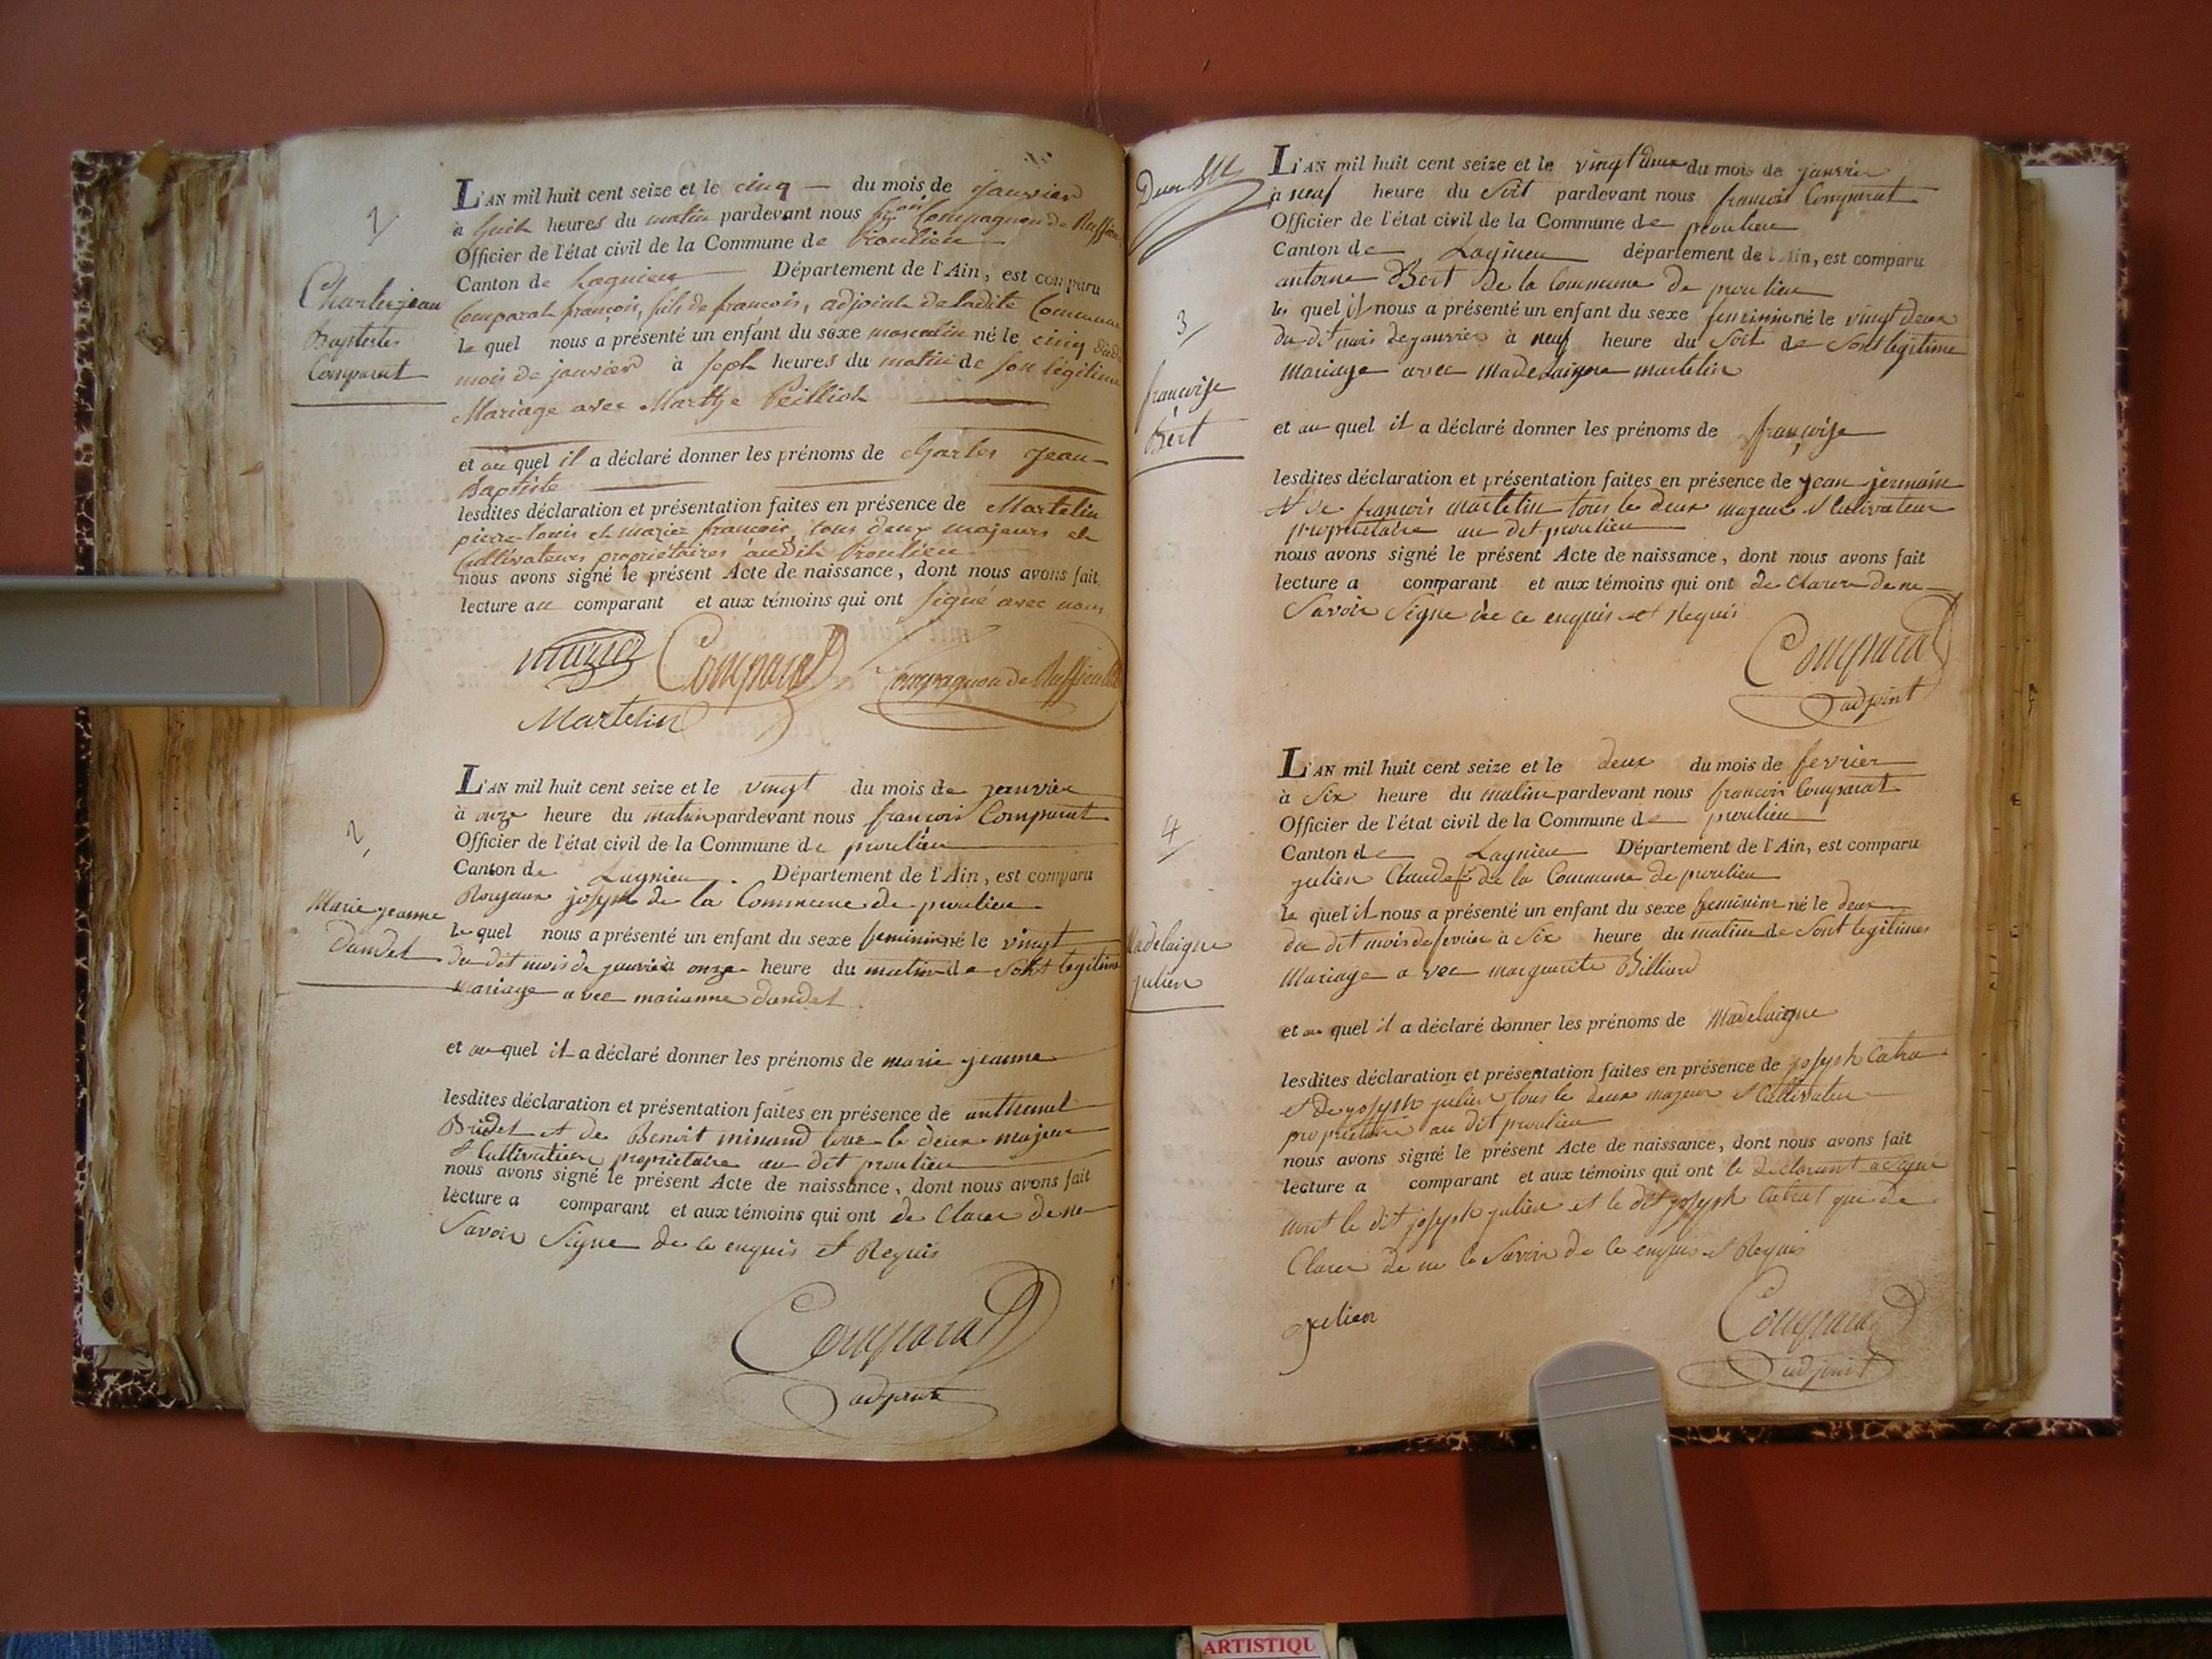 1
Charles jean
Baptiste
Comparat
L'AN mil huit cent seize et le cinq du mois de janvier
à huit heures du matin pardevant nous frçois Compagnon de Ruffieu
Officier de l'état civil de la Commune de Proulieu
Canton de Lagnieu Département de l'Ain, est comparu
Comparat françois, fils de françois, adjoint de ladite Commune
le quel nous a présenté un enfant du sexe masculin né le cinq dudit
mois de janvier à sept heures du matin de son légitime
Mariage avec Marthe Peilliot
et au quel il a déclaré donner les prénoms de Charles Jean
Baptiste
lesdites déclaration et présentation faites en présence de Martelin
pierre-louis et mazier françois, tous deux majeurs et
Cultivateurs propriétaires audit Proulieu
nous avons signé le présent Acte de naissance, dont nous avons fait
lecture au comparant et aux témoins qui ont signé avec nous
Comparat Compagnon de Ruffieu
Martelin
2
Marie jeanne
dandel
L'AN mil huit cent seize et le vingt du mois de janvier
à onze heure du matin pardevant nous francois Comparat
Officier de l'état civil de la Commune de proulieu
Canton de Lagnieu Département de l'Ain, est comparu
joseph de la Commune de proulieu
le quel nous a présenté un enfant du sexe feminin né le vingt
du dit mois de janvier à onze heure du matin de sont legitime
mariage avec marianne dandel
et au quel il a déclaré donner les prénoms de marie jeanne
lesdites déclaration et présentation faites en présence de anthemel
Bridet et de Benoit minand tous le deux majeur
et Cultivateur propriétaire au dit proulieu
nous avons signé le présent Acte de naissance, dont nous avons fait
lecture a comparant et aux témoins qui ont de Clarer de ne
Savoir Signe de ce enquis et Requis
Comparat
adjoint
3
françoise
Bert
L'AN mil huit cent seize et le vingt deux du mois de janvier
à neuf heure du Soit pardevant nous francois Comparat
Officier de l'état civil de la Commune de proulieu
Canton de Lagnieu département de l'Ain, est comparu
antoine Bert de la Commune de proulieu
le quel il nous a présenté un enfant du sexe feminin né le vingt deux
du dit mois de janvier à neuf heure du Soit de Sont legitime
mariage avec madelaigne martelin
et au quel il a déclaré donner les prénoms de françoise
lesdites déclaration et présentation faites en présence de jean jermain
et de françois martelin tous le deux majeur et Cultivateur
propriétaire au dit proulieu
nous avons signé le présent Acte de naissance, dont nous avons fait
lecture a comparant et aux témoins qui ont de Clarer de ne
Savoir Signe de ce enquis et Requis
Comparat
adjoint
4
Madelaigne
julien
L'AN mil huit cent seize et le deux du mois de fevrier
à Six heure du matin pardevant nous francois Comparat
Officier de l'état civil de la Commune de proulieu
Canton de Lagnieu Département de l'Ain, est comparu
julien Claude de la Commune de proulieu
le quel il nous a présenté un enfant du sexe feminin né le deux
du dit mois de fevrier à Six heure du matin de Sont legitimes
Mariage avec marguerite Billiard
et au quel il a déclaré donner les prénoms de Madelaigne
lesdites déclaration et présentation faites en présence de joseph
et de joseph julien tous le deux majeur et Cultivateur
propriétaire au dit proulieu
nous avons signé le présent Acte de naissance, dont nous avons fait
lecture a comparant et aux témoins qui ont le declarant a Signe
le dit joseph julien et le dit joseph qui de
Clarer de ne le Savoir de ce enquis et Requis
julien
Comparat
adjoint
ARTISTIQU